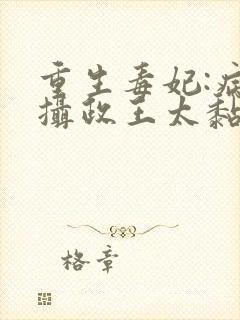 重生毒妃:病
攝政王太黏
格章